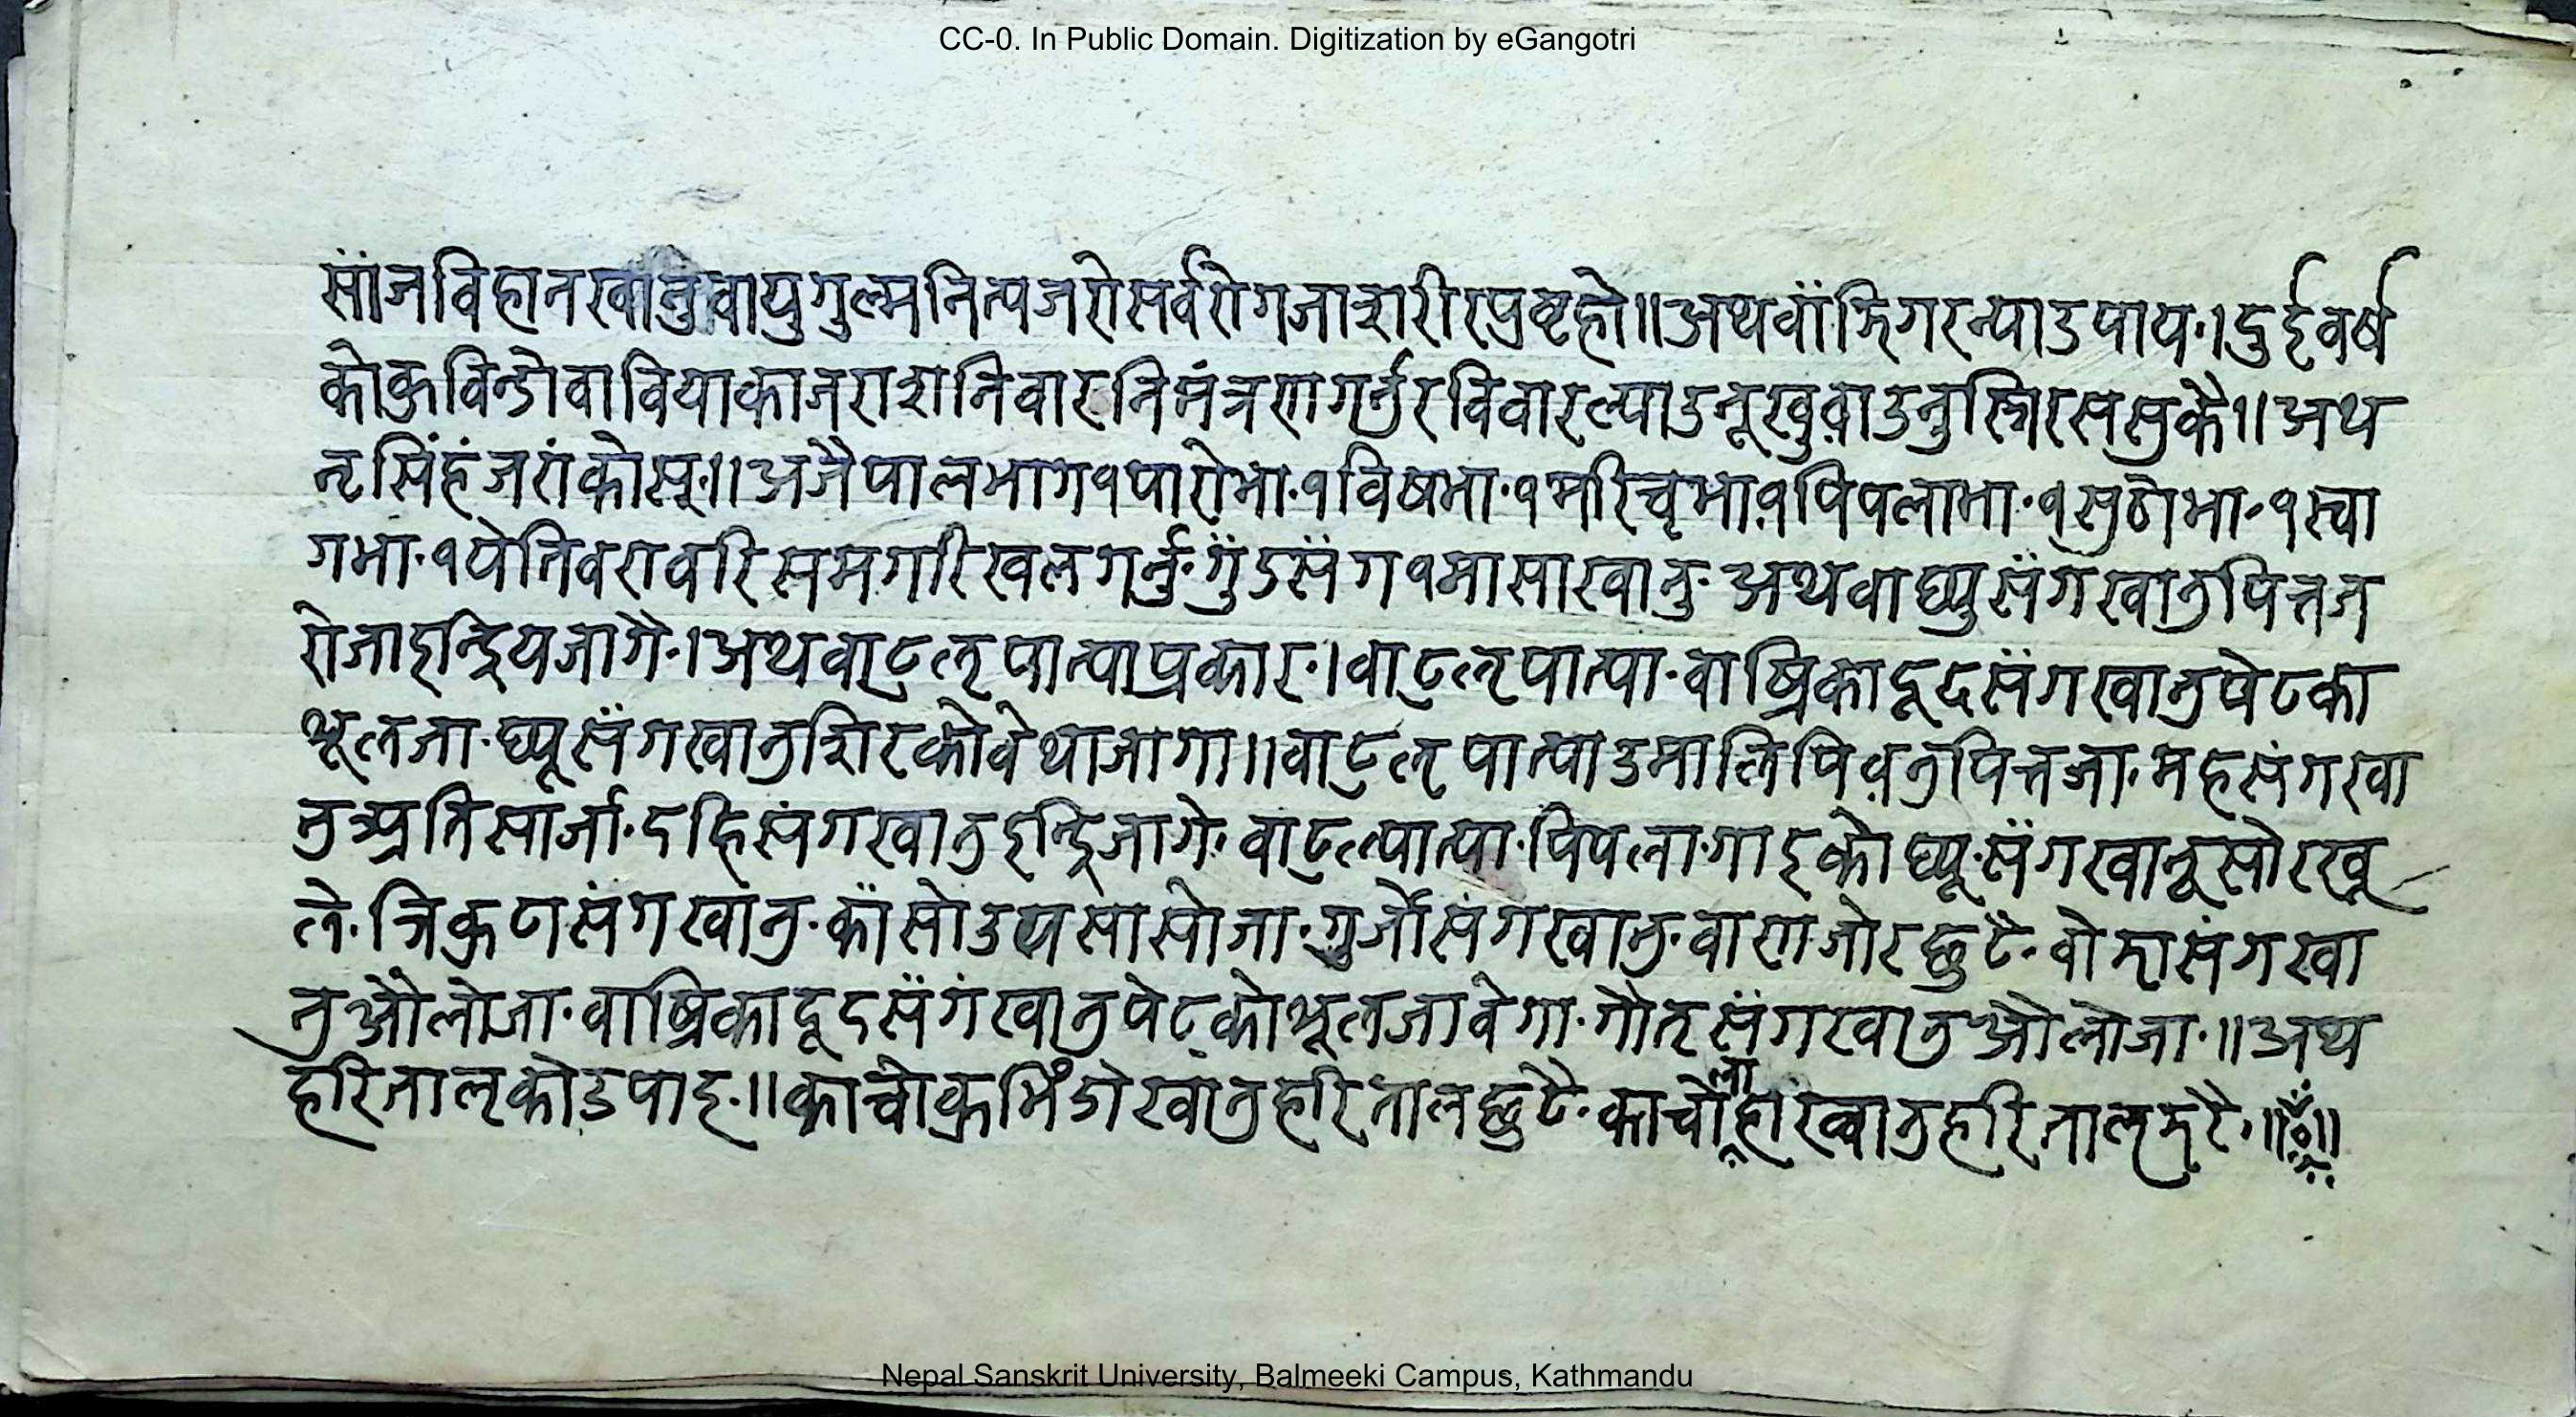 CC-0. In Public Domain. Digitization by eGangotri
साँजविहानखानुवायुगुल्मनित्पजरोसर्वरोगजाशरीरप्रष्टहो॥अथवाँझिगरन्पाउपाय·।दुईवर्ष
कोकुविन्डोवावियाकाजराशनिवारनिमंत्रणागर्नुरविवारल्पाउनूखुवाउनुस्त्रिरससुकै१।अथ
नृसिंहंजरांकोसू·॥अजैपालभाग१पारोभा·१विषभा·१मरिचृभा१पिपलाभा·१सुठोभा·१स्वा
गभा·१पेतिवरावरिसमगरिखलगर्नु·गुँडसँग१मासाखानु·अथवाघ्युसँगखानुपित्तज
रोजाइन्द्रियजागै·।अथवाटुलपात्पाप्रकार·।वाटुलपात्पा·वाख्रिकादूदसँगखानुपेटका
शूलजा·घ्यूसँगखानुशिरकोवेथाजागा॥वाटुलपात्पाउमालिपिवनुपित्तजा·महसंगखा
नुअप्रतिसार्जा·दहिसंगखानुइन्द्रिजागे·वाटुलपात्पा·पिपला·गाइकोघ्यू·सँगखानूसोरखू
ले·त्रिकुटासंगखानु·काँसोउससासोजा·गुर्जोसंगखानु·वाणाजोरछुटै·वोझासंगखा
नुऔलोजा·वाख्रिकादूदसँगंखानुपेटकोशूलजावेगा·गोतसँगखानुऔलोजा·॥अथ
हरितालकोउपाइ·॥काचोकुभिंडोखानुहरितालछुटै·काचोलाहाखानुहरितालमरै·॥ॐ॥
Nepal Sanskrit University, Balmeeki Campus, Kathmandu